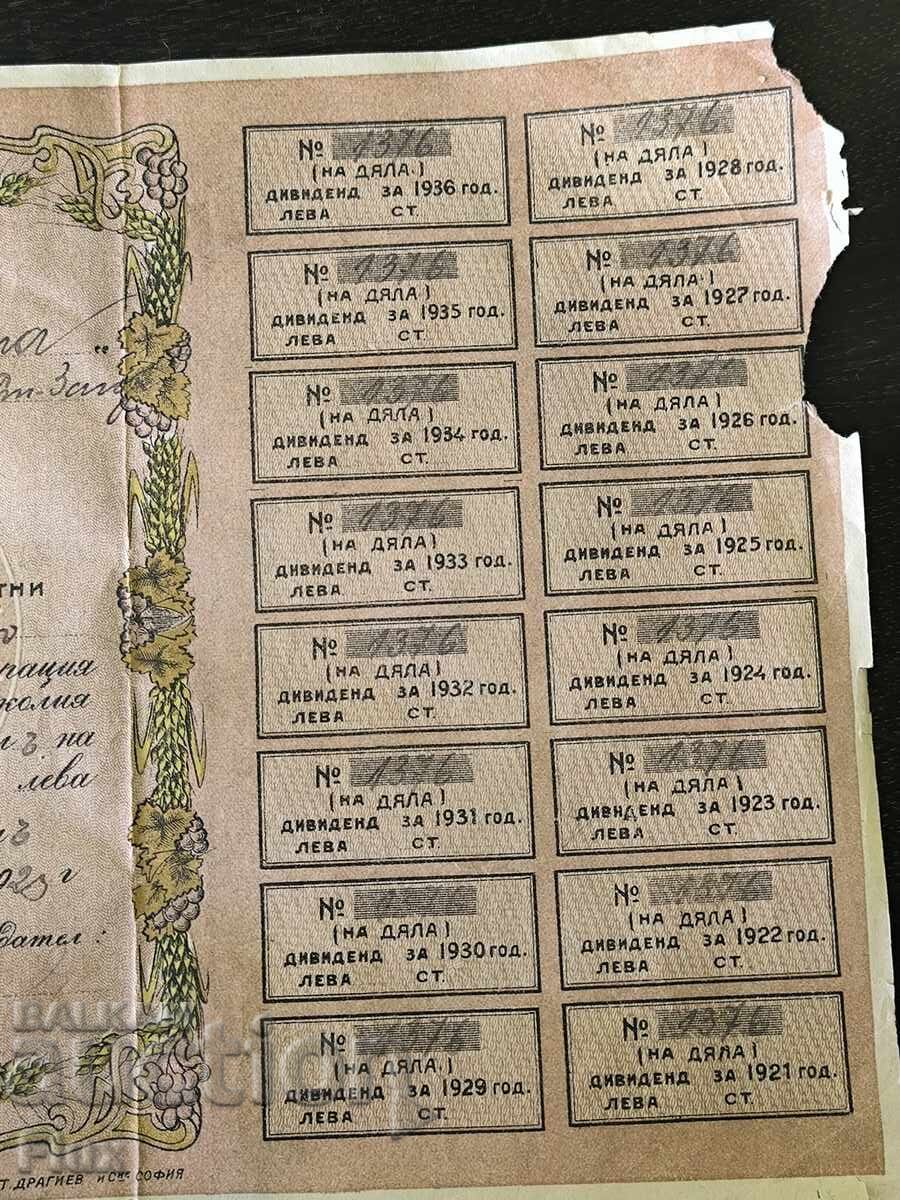 ТНИ
рация
колия
на
лева
г
дател:
Т. ДРАГИЕВ И Сие СОФИЯ
№ 1376
(НА ДЯЛА)
ДИВИДЕНД ЗА 1936 ГОД.
ЛЕВА СТ.
№ 1376
(НА ДЯЛА)
ДИВИДЕНД ЗА 1935 ГОД.
ЛЕВА СТ.
№ 1376
(НА ДЯЛА)
ДИВИДЕНД ЗА 1934 ГОД.
ЛЕВА СТ.
№ 1376
(НА ДЯЛА)
ДИВИДЕНД ЗА 1933 ГОД.
ЛЕВА СТ.
№ 1376
(НА ДЯЛА)
ДИВИДЕНД ЗА 1932 ГОД.
ЛЕВА СТ.
№ 1376
(НА ДЯЛА)
ДИВИДЕНД ЗА 1931 ГОД.
ЛЕВА СТ.
№ 1376
(НА ДЯЛА)
ДИВИДЕНД ЗА 1930 ГОД.
ЛЕВА СТ.
№ 1376
(НА ДЯЛА)
ДИВИДЕНД ЗА 1929 ГОД.
ЛЕВА СТ.
№ 1376
(НА ДЯЛА)
ДИВИДЕНД ЗА 1928 ГОД.
ЛЕВА СТ.
№ 1376
(НА ДЯЛА)
ДИВИДЕНД ЗА 1927 ГОД.
ЛЕВА СТ.
№ 1376
(НА ДЯЛА)
ДИВИДЕНД ЗА 1926 ГОД.
ЛЕВА СТ.
№ 1376
(НА ДЯЛА)
ДИВИДЕНД ЗА 1925 ГОД.
ЛЕВА СТ.
№ 1376
(НА ДЯЛА)
ДИВИДЕНД ЗА 1924 ГОД.
ЛЕВА СТ.
№ 1376
(НА ДЯЛА)
ДИВИДЕНД ЗА 1923 ГОД.
ЛЕВА СТ.
№ 1376
(НА ДЯЛА)
ДИВИДЕНД ЗА 1922 ГОД.
ЛЕВА СТ.
№ 1376
(НА ДЯЛА)
ДИВИДЕНД ЗА 1921 ГОД.
ЛЕВА СТ.
BALKAN
auction
Flux